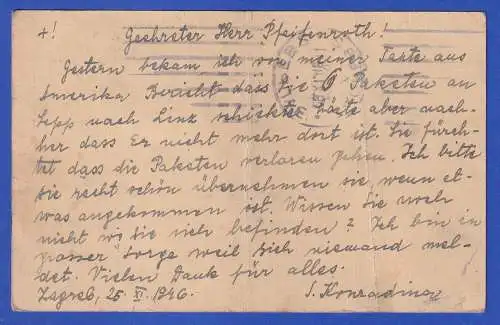 +! Geehrter Herr Pfeifenroth!
Gestern bekam ich von meiner Tante aus
Amerika Bericht dass Sie 6 Paketen an
Sepp nach Linz schickte, hörte aber nach-
her dass Er nicht mehr dort ist. Sie fürch-
tet dass die Paketen verloren gehen. Ich bitte
Sie recht schön übernehmen sie, wenn et-
was angekommen ist. Wissen Sie noch
nicht wo Sie sich befinden? Ich bin in
grosser Sorge weil sich niemand mel-
det. Vielen Dank für alles.
Zagreb, 25. XI. 1946. S. Konradina